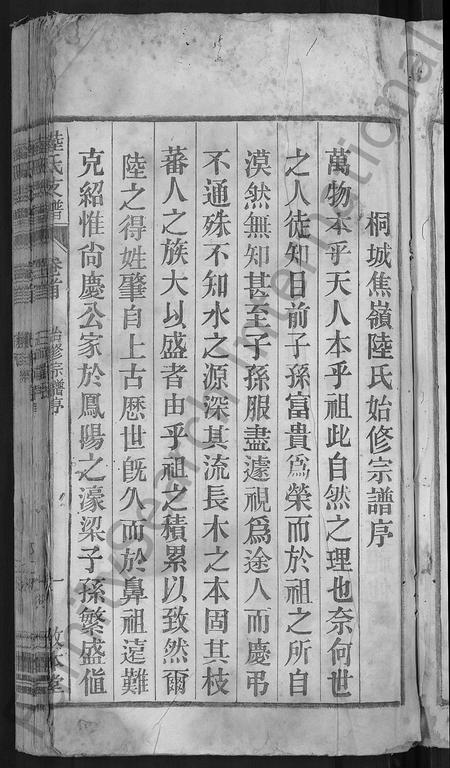 桐城焦嶺陸氏始修宗譜序
萬物本乎天人本乎祖此自然之理也奈何世
之人徒知目前子孫富貴爲榮而於祖之所自
漠然無知甚至子孫服盡遽視爲途人而慶弔
不通殊不知水之源深其流長木之本固其枝
蕃人之族大以盛者由乎祖之積累以致然爾
陸之得姓肇自上古歷世旣久而於鼻祖遠難
克紹惟尙慶公家於鳳陽之濠梁子孫繁盛値
陸氏支譜
卷首
始修宗譜序
一
堂
FamilySearch International